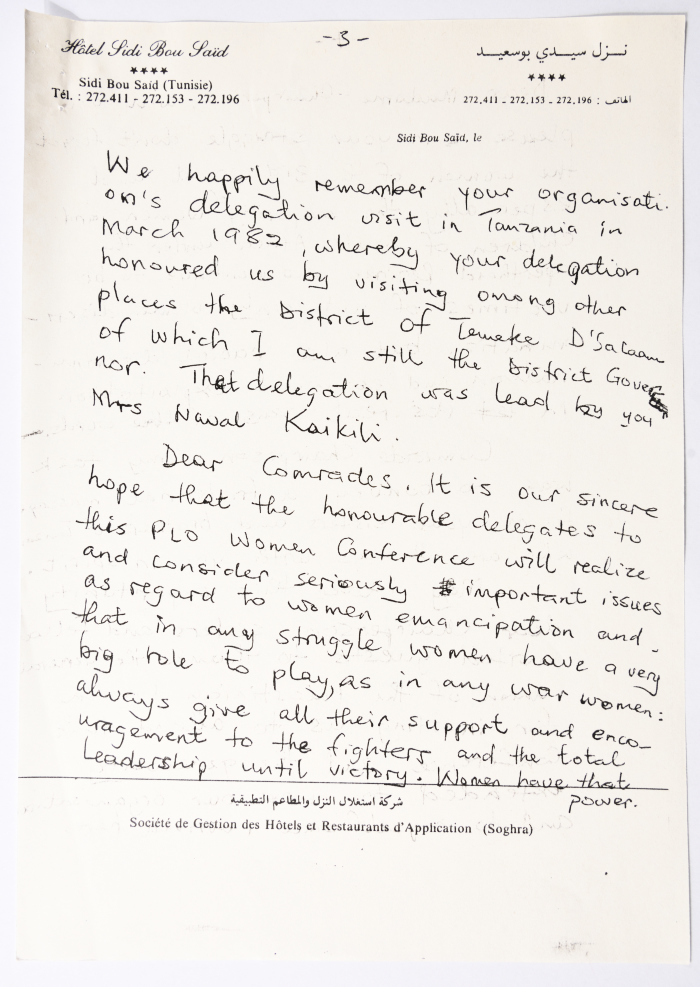 -3-
Hôtel Sidi Bou Saïd
★★★★
Sidi Bou Saïd (Tunisie)
Tél. : 272.411 - 272.153 - 272.196
نـزل سيـدي بـوسعيـد
★★★★
الهاتف : 272.196 - 272.153 - 272.411
Sidi Bou Saïd, le
We happily remember your organisati.
on's delegation visit in Tanzania in
March 1982, whereby your delegation
honoured us by visiting among other
places the District of Temeke D'Salaam
of which I am still the District Gover
nor. That delegation was lead by you
Mrs Nawal Kaikili.
Dear Comrades. It is our sincere
hope that the honourable delegates to
this PLO Women Conference will realize
and consider seriously important issues
as regard to women emancipation and
that in any struggle women have a very
big role to play, as in any war women:
always give all their support and enco-
uragement to the fighters and the total
leadership until victory. Women have that
power.
شركة استغلال النزل والمطاعم التطبيقية
Société de Gestion des Hôtels et Restaurants d'Application (Soghra)